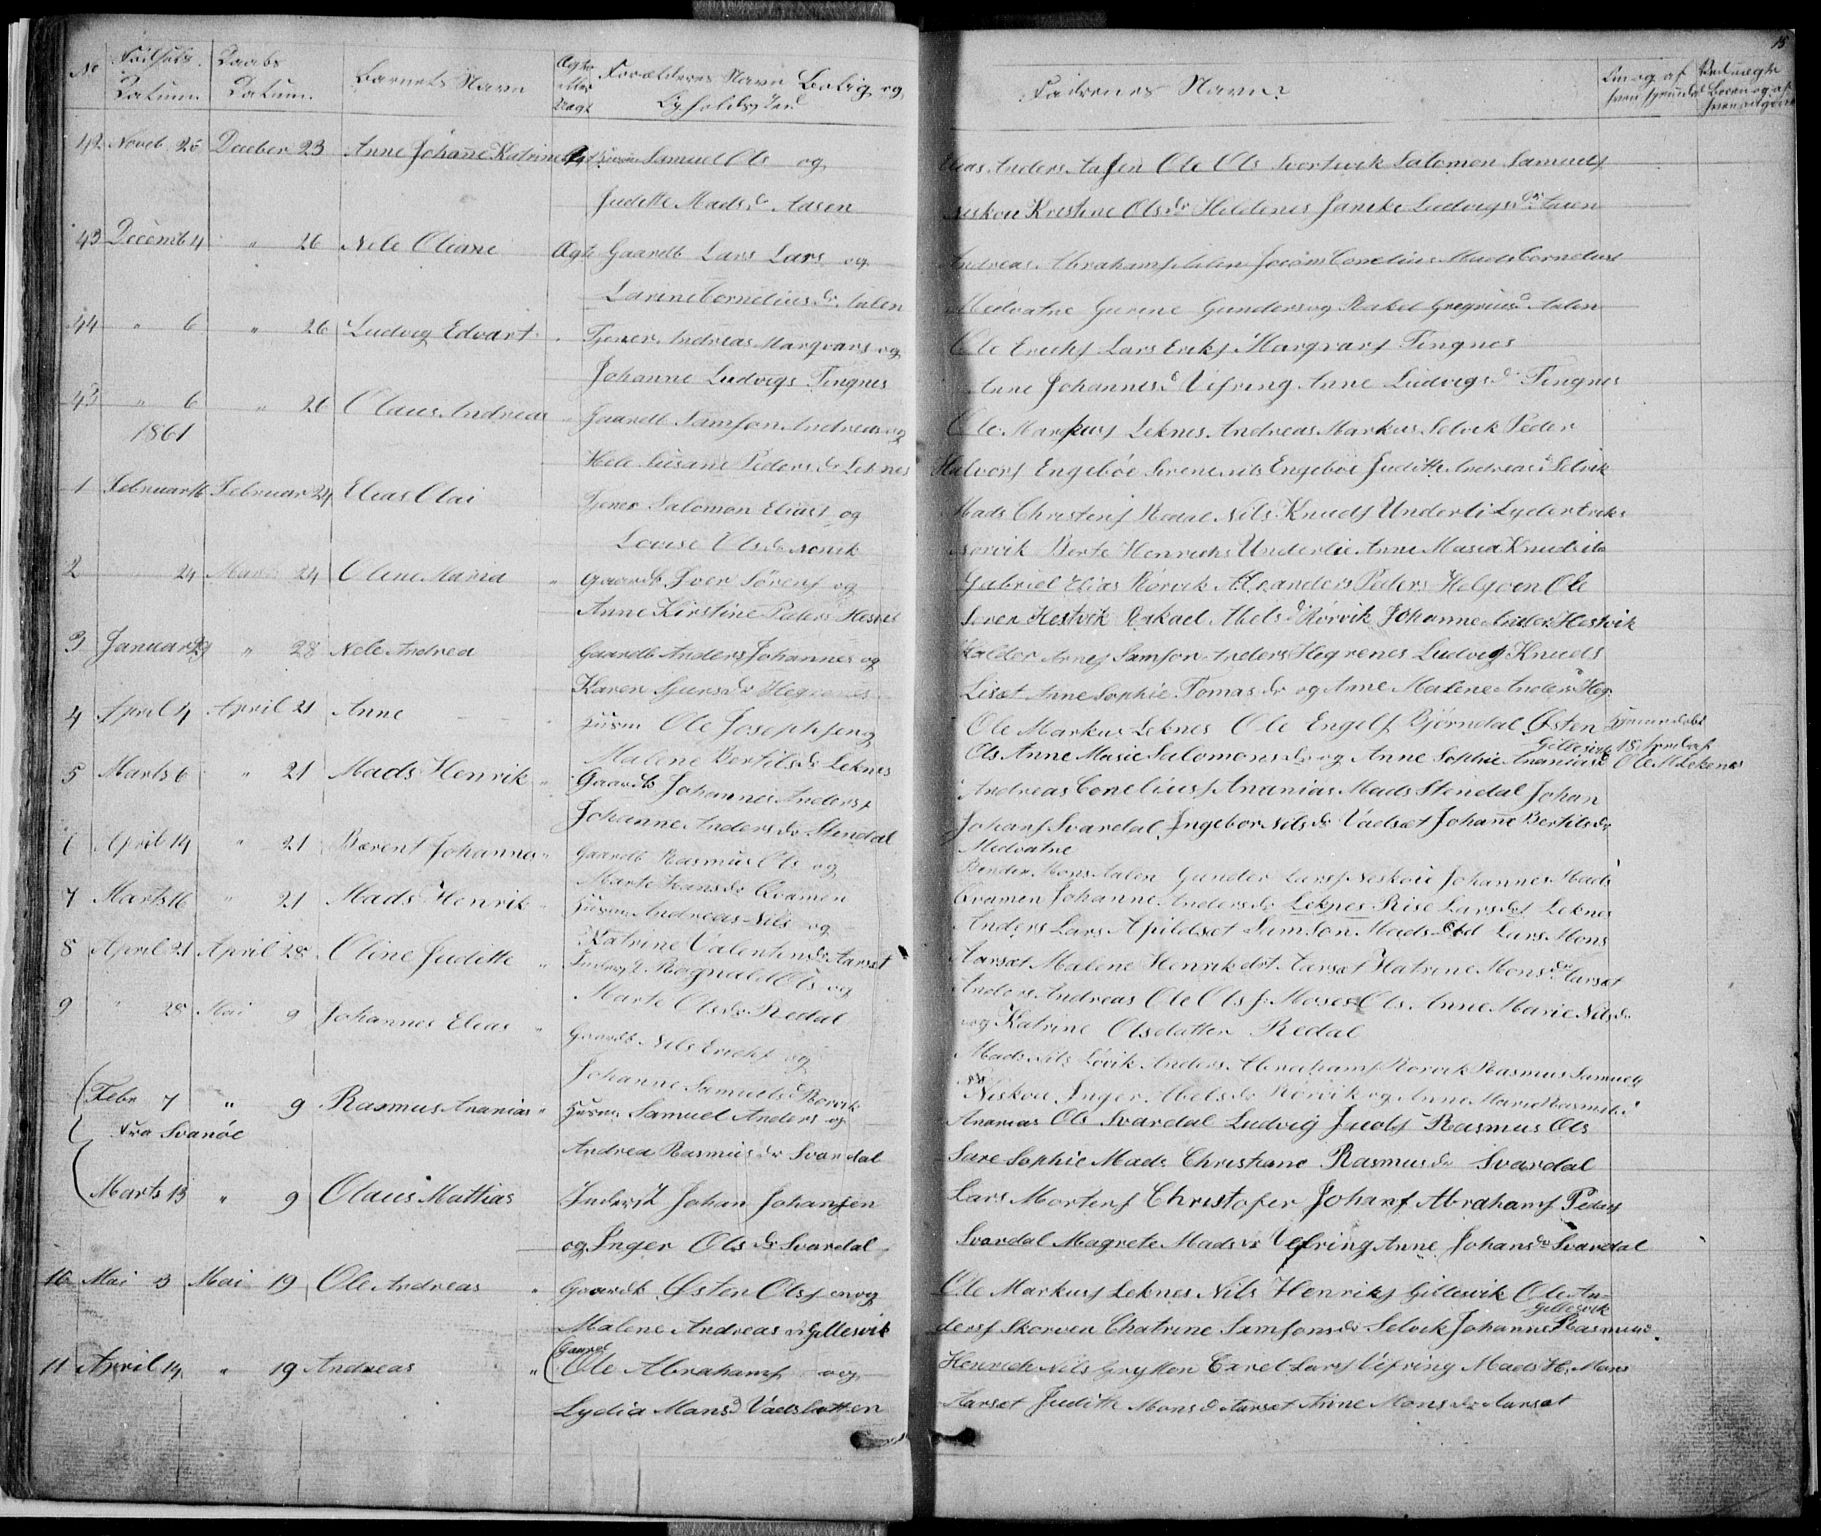 No Fødsels Datum Daabs Datum. Barnets Navn Ægte eller Uægt Forældrenes Navn Bolig og
Faderenes Navne
15
42 Noveb 26 Deceber 23 Anne Johanne Katrine Ægt Huusm Samuel Ols og
Judette Mads dr Aasen
Elias Anders Aasen Ole Ols Svortevik Salomon Samuels
Neskøe Kristine Ols dr Heldenes Jancke Ludvigs dr Aasen
43 Decemb 4 " 26 Nele Oliane Ægte Gaardb Lars Lars og
Larine Cornelius dr Aalen
Andreas Abrahams Aalen Joiom Conelius Mads Cornelius
Midvatne Gurine Gunders og Rakel Gregrius d Aalen
44 " 6 " 26 Ludvig Edvart " Tjener Andreas Marqvars og
Johanne Ludvigs Tingnes
Ole Erichs Lars Eriks Marqvars Tingnes
Anne Johannes d Vefring Anne Ludvigs d Tingnes
43 " 6 " 26 Olaus Andreas " Gaardb Samson Andreas og
Nele Susane Peders dr Leknes
Ole Markus Leknes Andreas Markus Selvik Peder
Halvors Engebøe Sirene Nils Engebøe Judithe Andreas d Selvik
1861
1 Februar 16 Februar 24 Elias Olai Tjener Salomon Elias og
Lovise Ols dr Norvik
Mads Christens Redal Nils Knuds Underli Lyder Eriks
Norvik Berte Henrichs Underlie Anne Masia Knuds
2 " 24 Marts 24 Oline Maria " Gaardb Iver Sørens og
Anne Kirstine Peders Hestvik
Gabriel Elias Rørvik Alexanders Peders Helgøen Ole
Søren Hestvik Rakael Abels d Rørvik Johanne Anders Hestvik
3 Januar 29 " 28 Nele Andrea Gaardb Anders Johannes og
Karen Sjurs dr Hegrenes
Halder Arnes Samson Anders Hegrenes Ludvig Knuds
Liset Anne Sophie Tomas dr og Anne Malene Anders Heg
4 April 4 April 21 Anne " Huusm Ole Josephsen og
Malene Bertils dr Leknes
Ole Markus Leknes Ole Engels Bjørndal Østen Hjemmedøbt
Gillesvik 18 April af
Ols Anne Masie Salomons dr og Anne Sophie Ananias d Ole M Lekenes
5 Marts 6 " 21 Mads Henrik " Gaardb Johannes Anders
Johanne Anders dr Stendal
Andreas Conelius Ananias Mads Stendal Johan
Johans Svardal Ingebor Nils dr Vadset Johane Bertils dr
Midvatne
6 April 14 " 21 Bærent Johannes " Gaardb Rasmus Ols og
Marte Hans dr Qvamen
Bender Mons Aalen Gunder Lars Neskøie Johannes Mads
Qvamen Johanne Anders dr Leknes Rise Lars dr Leknes
7 Marts 16 " 21 Mads Henrik " Huusm Andreas Nils og
Katrine Valentin dr Aarset
Anders Lars Apildset Samson Mads Eid Lars Mons
Aarset Malene Henrik drt Aarset Katrine Mons dr Aarset
8 April 21 April 28 Oline Juditte " Inders Ragnald Ols og
Marte Ols dr Redal
Anders Andreas Ole Ols Moses Ols Anne Marie Nils dr
og Katrine Olsdatter Redal
9 " 28 Mai 9 Johannes Elias " Gaardb Nils Erichs og
Johanne Samuels d Rørvik
Mads Nils Løvik Anders Abrahams Rørvik Rasmus Samuels
Neskøe Inger Abels dr Rørvik og Anne Marie Rasmus d
Febr 7 " 9 Rasmus Ananias " Huusm Samuel Anders og
Fra Svanøe
Andrea Rasmus dr Svardal
Ananias Ols Svardal Ludvig Jacobs Rasmus Ols
Sare Sophie Mads Christiane Rasmus dr Svardal
Marts 13 " 9 Olaus Mattias Inderst Johan Johansen
og Inger Ols dr Svardal
Lars Mortens Christofer Johans Abrahams Peders
Svardal Magrete Mads dr Vefring Anne Johans dr Svardal
10 Mai 3 Mai 19 Ole Andreas " Gaardb Østen Olsen og
Malene Andreas dr Gillesvik
Ole Markus Leknes Nils Henriks Gillesvik Ole An-
Gillesvik
ders Skorven Chatrine Samsons dr Selvik Johanne Rasmus.
11 April 14 " 19 Andreas " Gaard Ole Abrahams og
Lydia Mons d Vadslatten
Henrich Nils Grytten Carel Lars Vefring Mads H. Mons
Aarset Judith Mons d Aarset Anne Mons dr Aarset